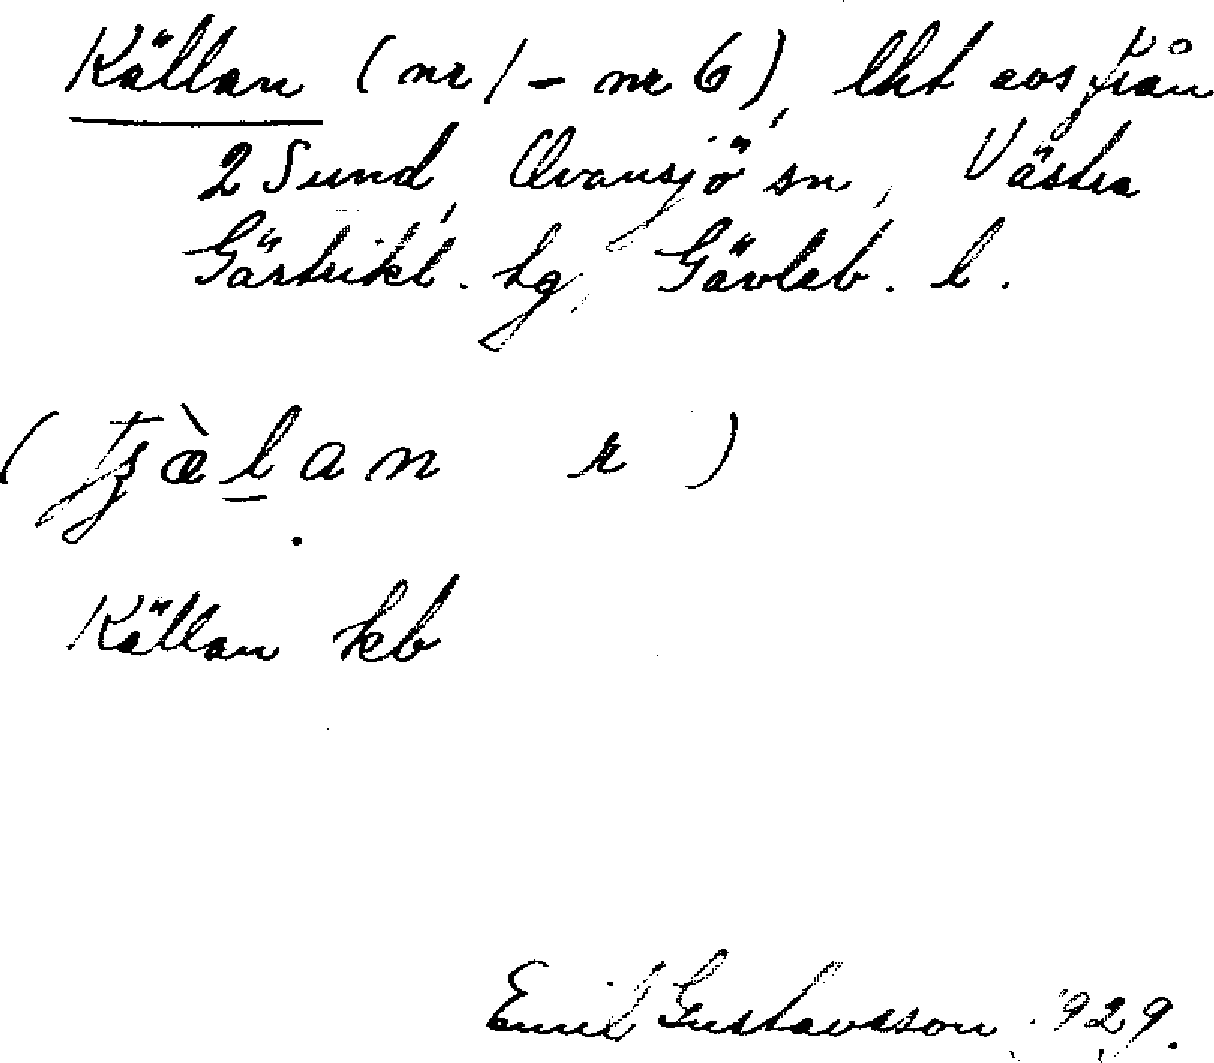 Källan (nr 1 - nr 6), lht avs från
2 Sund, Ovansjö sn, Västra
Gästrikl. tg, Gävleb. l.
( tʂæ̀l̠an r )
Källan kb
Emil Gustavsson 1929.